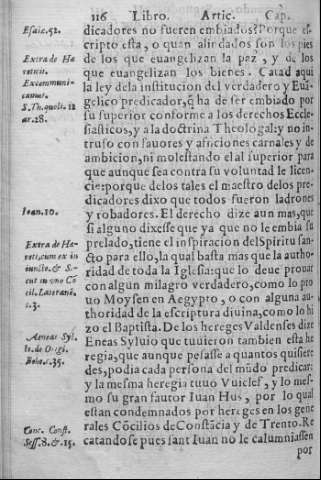 116 Libro. Artic. Cap.
dicadores no fueren embiados? Porque es-
cripto esta, o quan alindados son los pies
de los que euangelizan la paz, y de los
que euangelizan los bienes. Catad aqui
la ley dela institucion del verdadero y Euã
gelico predicador, q̃ ha de ser embiado por
su superior conforme a los derechos Ecle-
siasticos, y ala doctrina Theologal: y no in-
truso con fauores y aficiones carnales y de
ambicion, ni molestando el al superior para
que aunque sea contra su voluntad le licen-
cie: porque delos tales el maestro delos pre-
dicadores dixo que todos fueron ladrones
y robadores. El derecho dize aun mas, que
si alguno dixesse que ya que no le embia su
prelado, tiene el inspiracion del Spiritu san-
cto para ello, la qual basta mas que la autho-
ridad de toda la Iglesia: que lo deue prouar
con algun milagro verdadero, como lo pro
uo Moysen en Aegypto, o con alguna au-
thoridad de la escriptura diuina, como lo hi
zo el Baptista. De los hereges Valdenses dize
Eneas Syluio que tuuieron tambien esta he
regia, que aunque pesasse a quantos quisiete
des, podia cada persona del mũdo predicar:
y la mesma heregia tuuo Vuiclef, y lo mes-
mo su gran fautor Iuan Hus, por lo qual
estan condemnados por hereges en los gene
rales Cõcilios de Constãcia y de Trento. Re
catandose pues sant Iuan no le calumniassen
por
Esaie. 52.
Extra de Ha
reticis.
Excommuni-
camus.
S. Th. quoli. 12
ar. 28.
Ioan. 10.
Extra de Ha
reti. cum ex in
iuncto. & S.-
cut in vno Cõ
cil. Lateranẽ.
c. 3.
Aeneas Syl.
li. de Origi.
Bohe. c. 35.
Conc. Const.
Sess. 8. & 15.